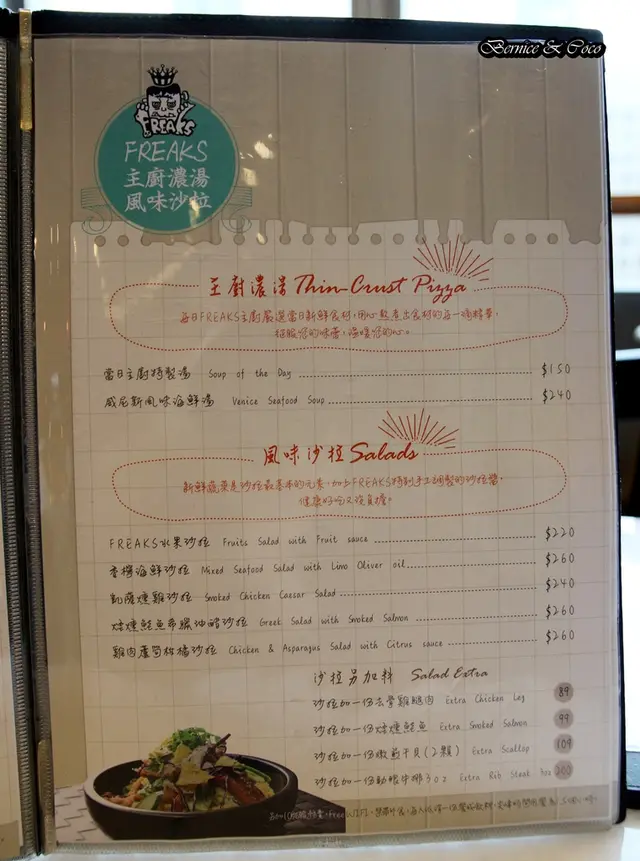 Bernice & Coco
FREAKS
FREAKS
主廚濃湯
風味沙拉
主廚濃湯 Thin-Crust Pizza
每日FREAKS主廚嚴選當日新鮮食材,用心熬煮出食材的每一滴精華,
征服您的味蕾,溫暖您的心。
當日主廚特製湯 Soup of the Day $150
威尼斯風味海鮮湯 Venice Seafood Soup $240
風味沙拉 Salads
新鮮蔬果是沙拉最基本的元素,加上FREAKS特別手工調製的沙拉醬,
健康好吃又沒負擔。
FREAKS水果沙拉 Fruits Salad with Fruit sauce $220
香檸海鮮沙拉 Mixed Seafood Salad with Limo Oliver oil $260
凱薩燻雞沙拉 Smoked Chicken Caesar Salad $240
焙燻鮭魚希臘油醋沙拉 Greek Salad with Smoked Salmon $260
雞肉蘆筍柑橘沙拉 Chicken & Asparagus Salad with Citrus sauce $260
沙拉另加料 Salad Extra
沙拉加一份去骨雞腿肉 Extra Chicken Leg 89
沙拉加一份焙燻鮭魚 Extra Smoked Salmon 99
沙拉加一份嫩煎干貝(2顆) Extra Scallop 109
沙拉加一份肋眼牛排3oz Extra Rib Steak 3oz 200